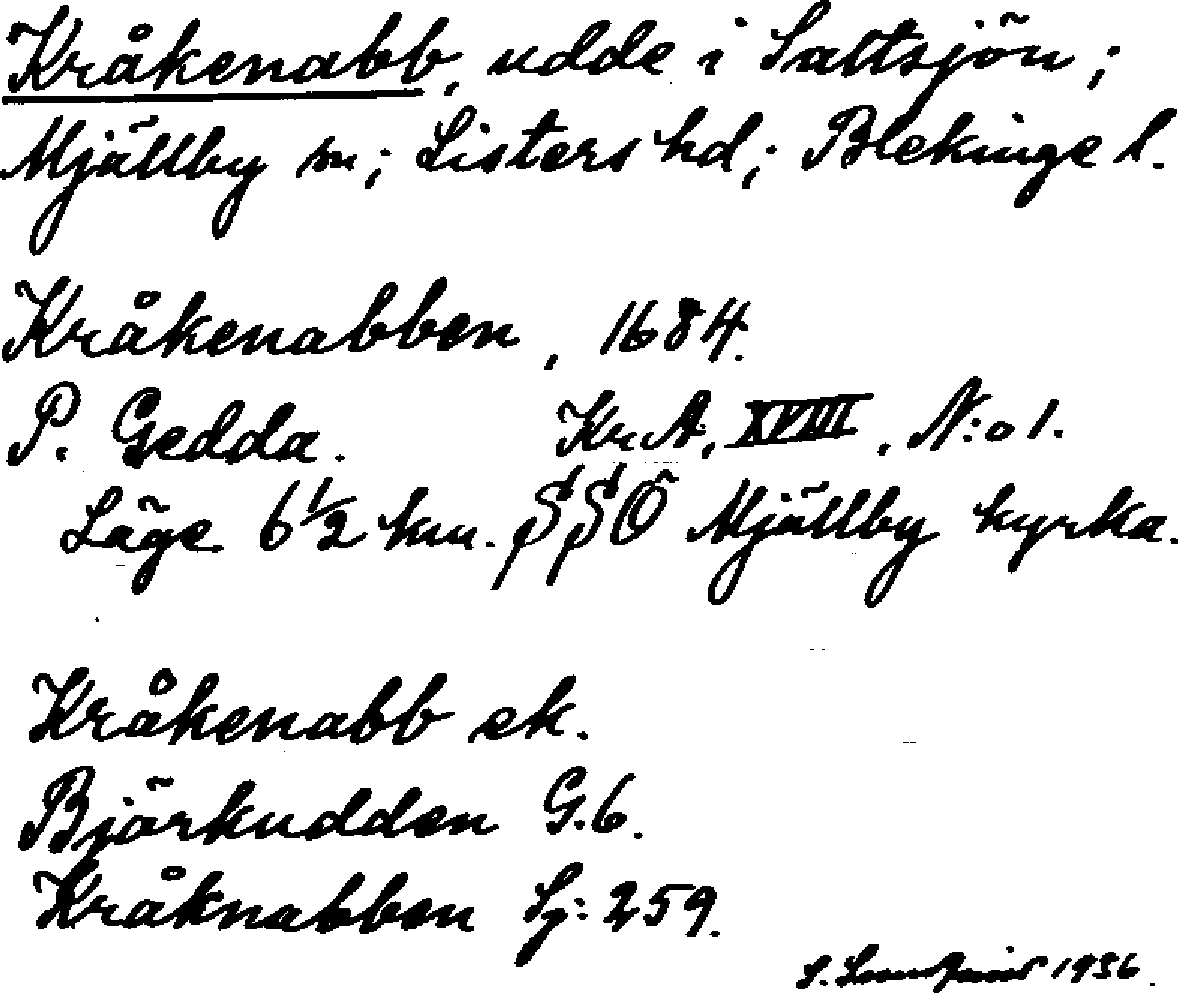 Kråkenabb, udde i Saltsjön;
Mjällby sn; Listers hd; Blekinge l.
Kråkenabben, 1684.
P. Gedda. Kr.A, XVIII, N:o 1.
Läge 6 1/2 km. SSO Mjällby kyrka.
Kråkenabb ek.
Björkudden G.6.
Kråknabben Sj: 259.
1936.